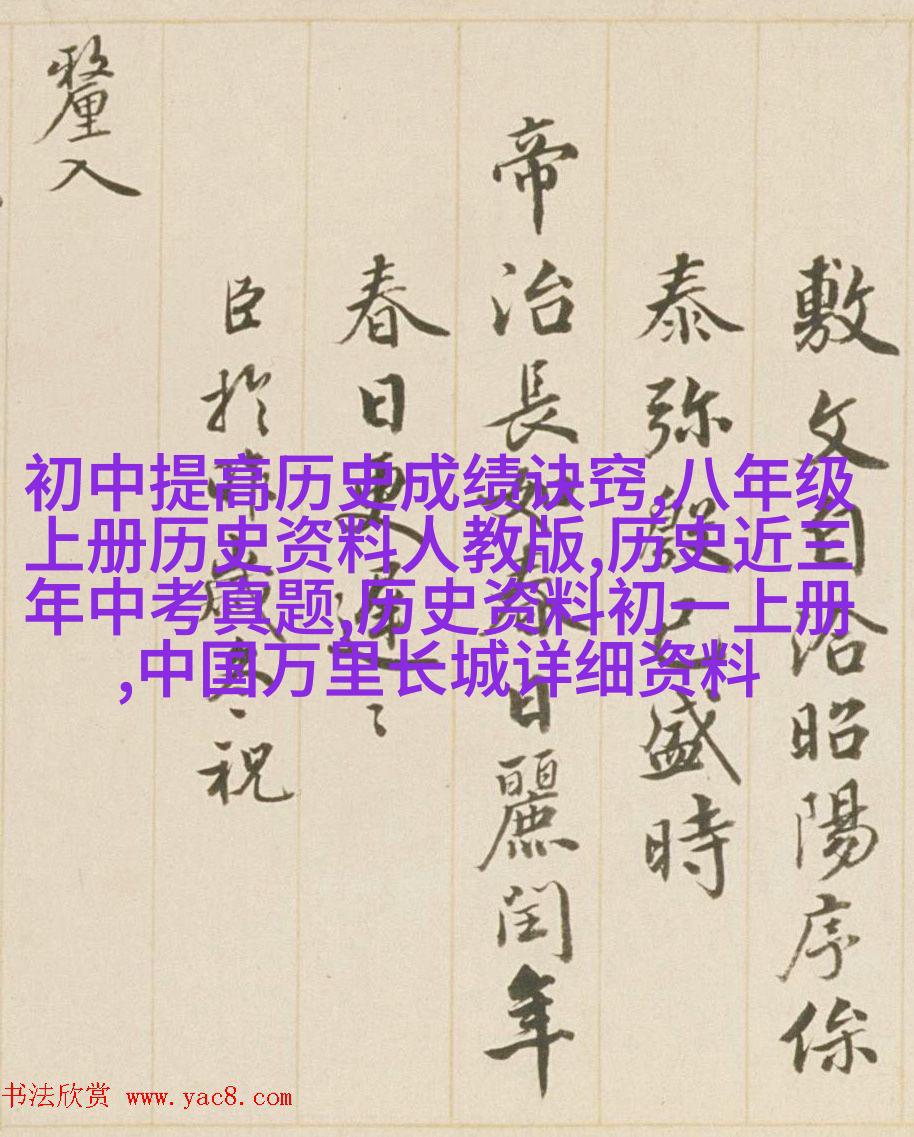 敷文自洽昭陽序絛
泰弥殷已盛時
帝治長久泰日麗閏年
春日更遲〻
臣於帝歳春〻祝
釐入
初中提高历史成绩诀窍,八年级
上册历史资料人教版,历史近三
年中考真题,历史资料初一上册
,中国万里长城详细资料
书法欣赏 www.yac8.com